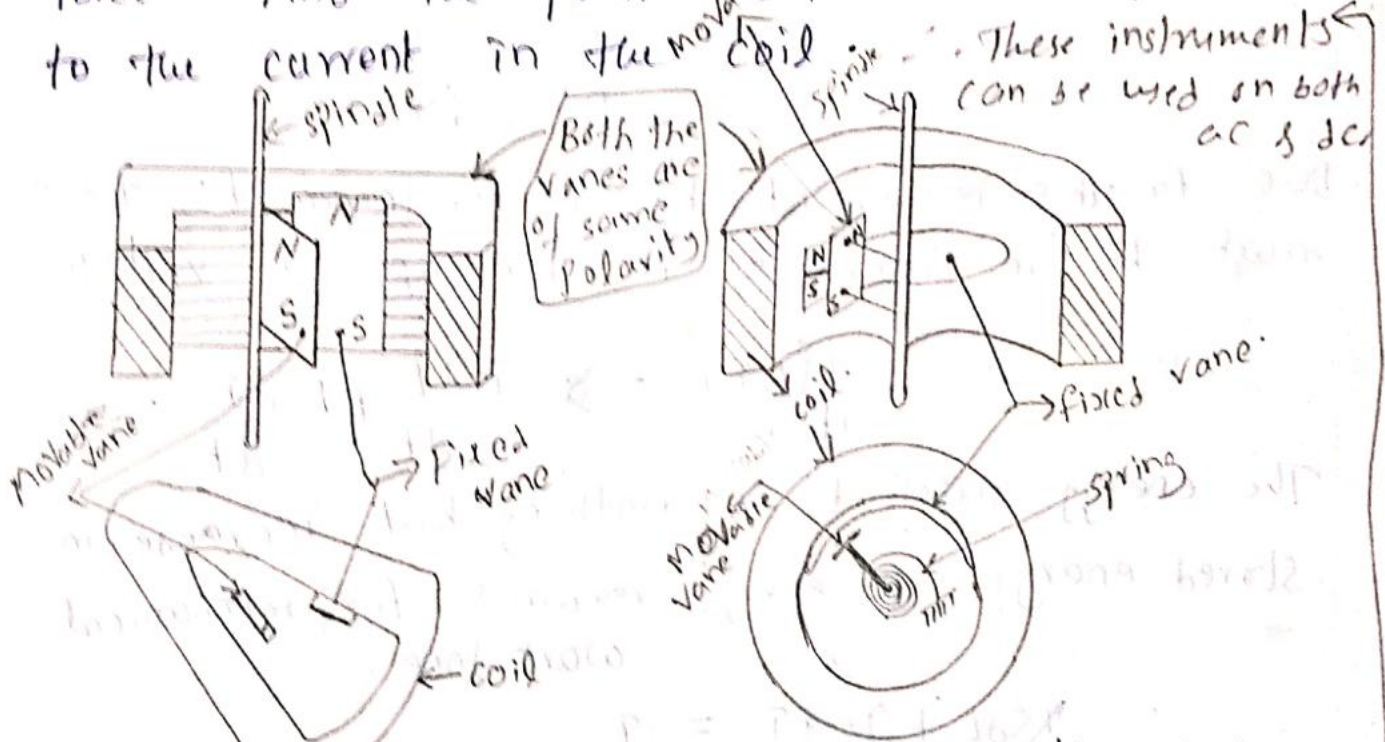 to the current in the coil ∴ These instruments
can be used on both
ac & dc
spindle
Both the
vanes are
of same
polarity
spindle
N
N
S
S
N
S
N
S
coil
fixed vane
Movable
vane
Fixed
vane
Movable
vane
spring
coil